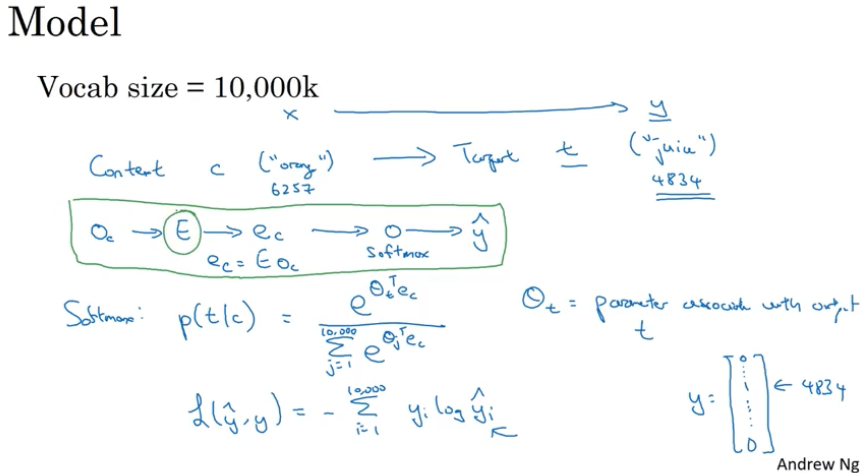 Model
Vocab size = 10,000k
x → y
Content c ("orang") → Target t ("juice")
6257 4834
O_c → E → e_c → o → ŷ
softmax
e_c = E O_c
Softmax: p(t|c) = e^{θ_t^T e_c} / Σ_{j=1}^{10,000} e^{θ_j^T e_c}
θ_t = parameter associate with output t
L(ŷ, y) = - Σ_{i=1}^{10,000} y_i log ŷ_i
y = [0 ⋮ 1 ⋮ 0] ← 4834
Andrew Ng